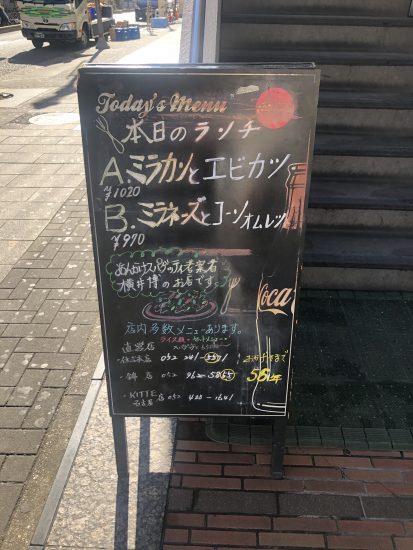 Today's Menu
本日のランチ
A.ミラカンとエビカツ
¥1020
B.ミラネーズとコーンオムレツ
¥970
あんかけスパゲッティ考案者
横井博のお店です。
店内多数メニューあります。
直営店
・住吉店 052 241-5571
・錦店 052 962-5855
・KITTE名古屋店 052
Coca
おかげさまで
58年